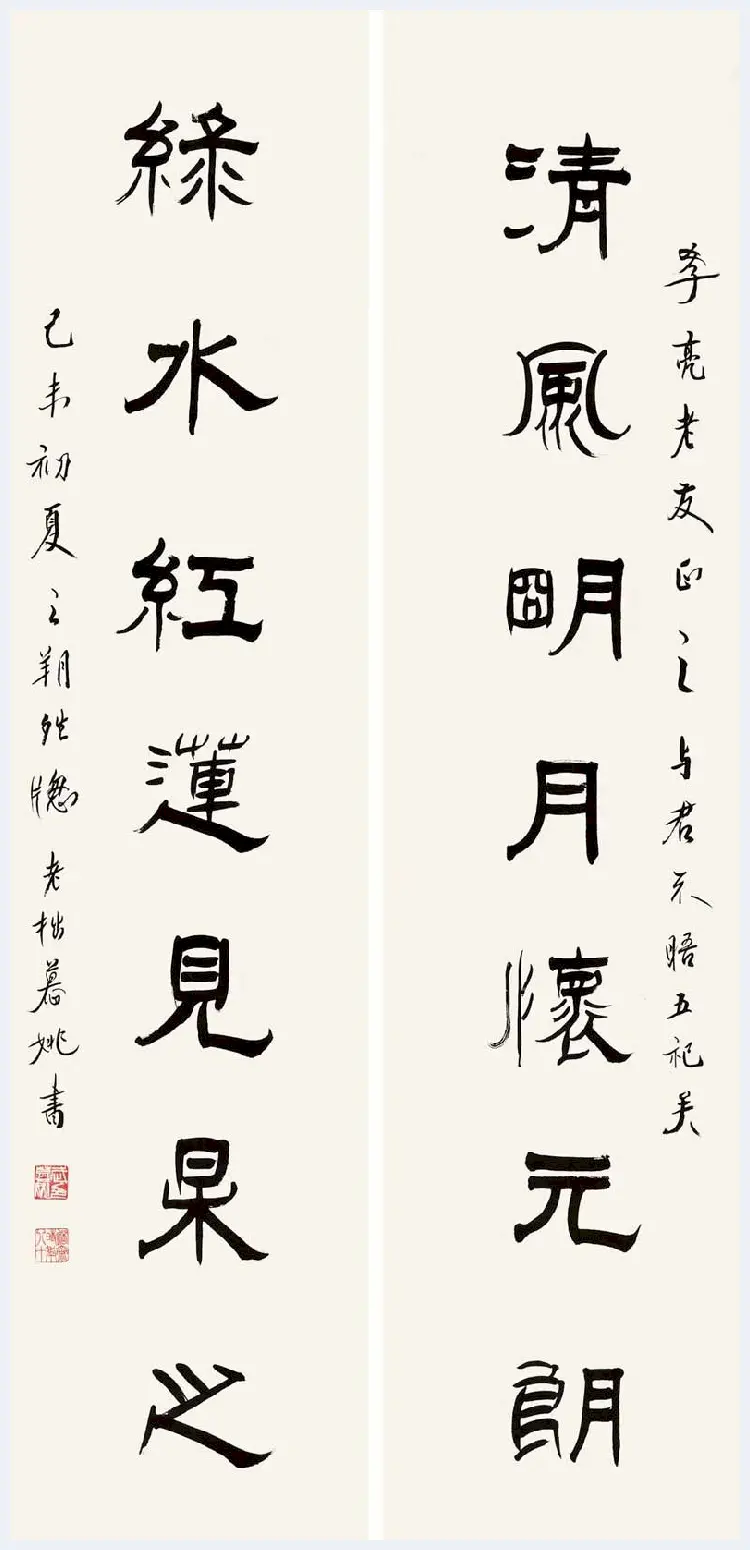 季亮老友正之与君不晤五祀矣
清風朙月懷元朗
綠水紅蓮見杲之
己未初夏之朔牕老拙慕姚書